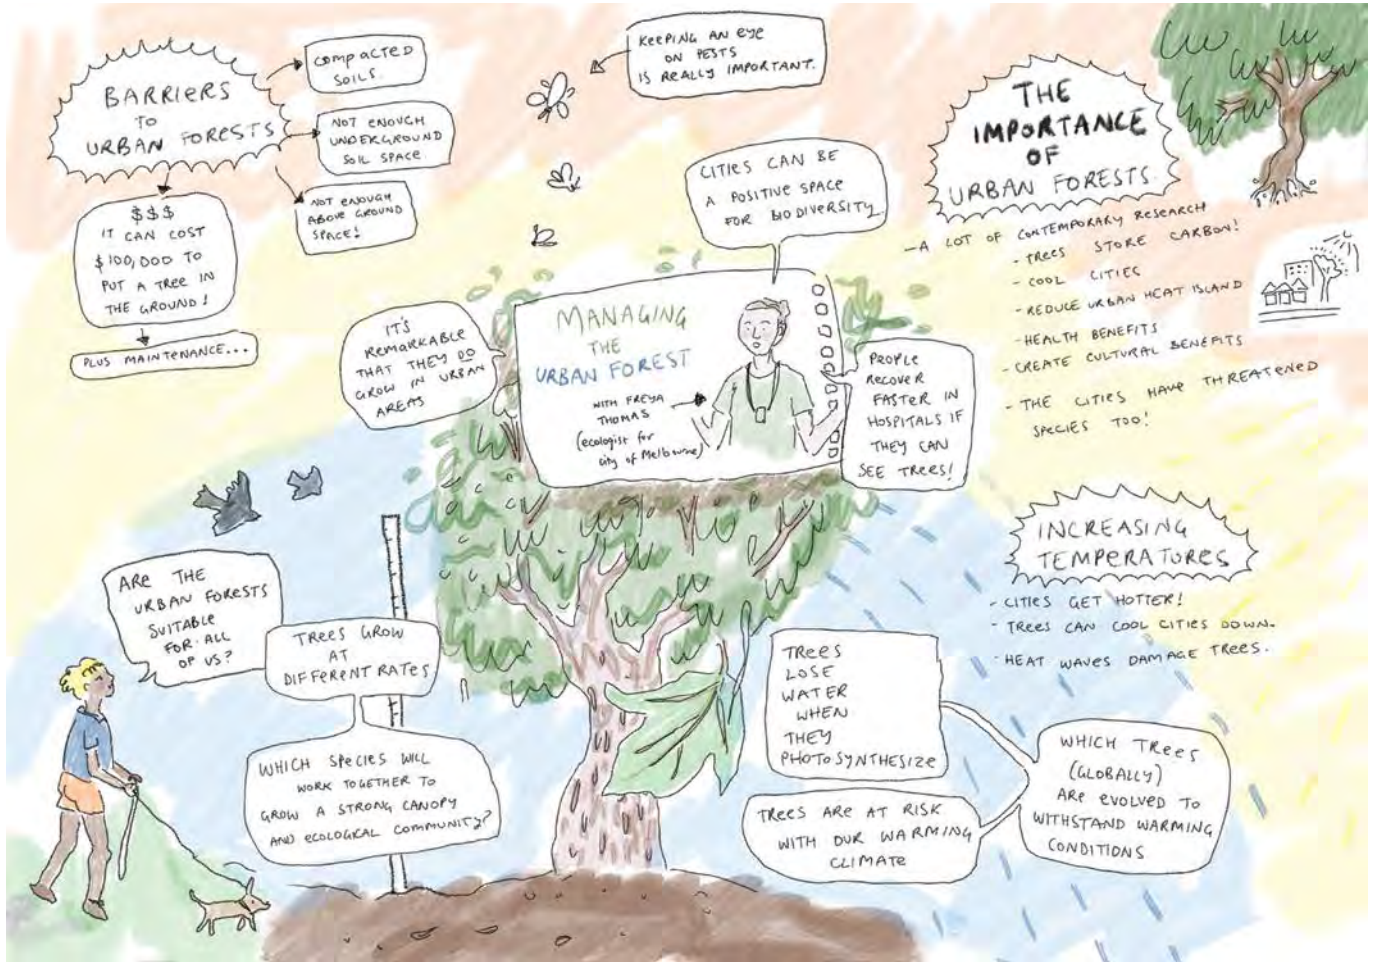 BARRIERS
TO
URBAN FORESTS
COMPACTED
SOILS.
NOT ENOUGH
UNDERGROUND
SOIL SPACE.
NOT ENOUGH
ABOVE GROUND
SPACE!
$$$
IT CAN COST
$100,000 TO
PUT A TREE IN
THE GROUND!
PLUS MAINTENANCE...
KEEPING AN EYE
ON PESTS
IS REALLY IMPORTANT.
CITIES CAN BE
A POSITIVE SPACE
FOR BIODIVERSITY
THE
IMPORTANCE
OF
URBAN FORESTS.
- A LOT OF CONTEMPORARY RESEARCH
- TREES STORE CARBON!
- COOL CITIES
- REDUCE URBAN HEAT ISLAND
- HEALTH BENEFITS
- CREATE CULTURAL BENEFITS
- THE CITIES HAVE THREATENED
SPECIES TOO!
IT'S
REMARKABLE
THAT THEY DO
GROW IN URBAN
AREAS
MANAGING
THE
URBAN FOREST
WITH FREYA
THOMAS
(ecologist for
city of Melbourne)
PEOPLE
RECOVER
FASTER IN
HOSPITALS IF
THEY CAN
SEE TREES!
INCREASING
TEMPERATURES
- CITIES GET HOTTER!
- TREES CAN COOL CITIES DOWN.
- HEAT WAVES DAMAGE TREES.
ARE THE
URBAN FORESTS
SUITABLE
FOR ALL
OF US?
TREES GROW
AT
DIFFERENT RATES
WHICH SPECIES WILL
WORK TOGETHER TO
GROW A STRONG CANOPY
AND ECOLOGICAL COMMUNITY?
TREES
LOSE
WATER
WHEN
THEY
PHOTOSYNTHESIZE
TREES ARE AT RISK
WITH OUR WARMING
CLIMATE
WHICH TREES
(GLOBALLY)
ARE EVOLVED TO
WITHSTAND WARMING
CONDITIONS